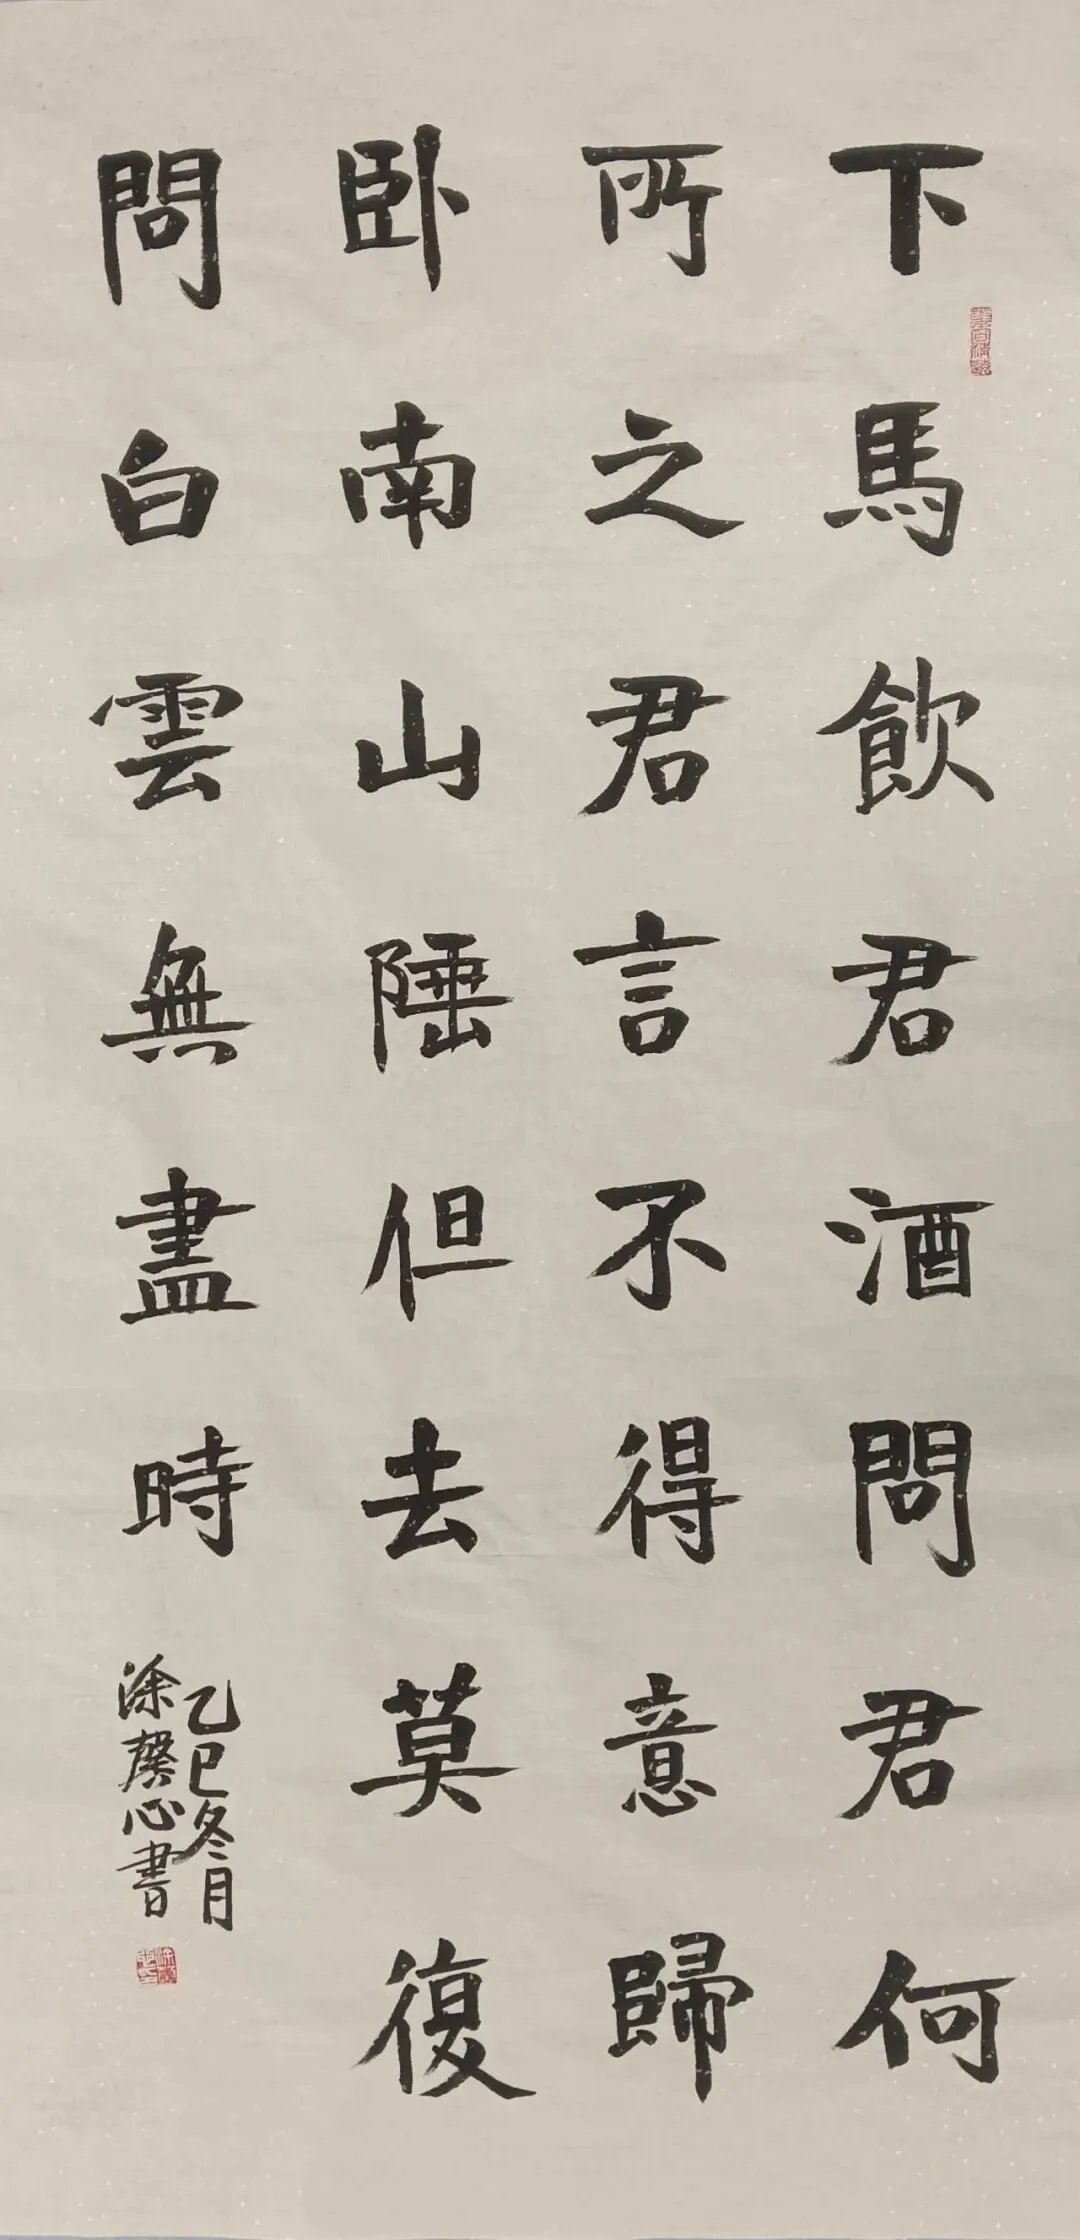 下馬飲君酒問君何
所之君言不得意歸
卧南山陲但去莫復
問白雲無盡時
乙巳冬月
涂馨心書